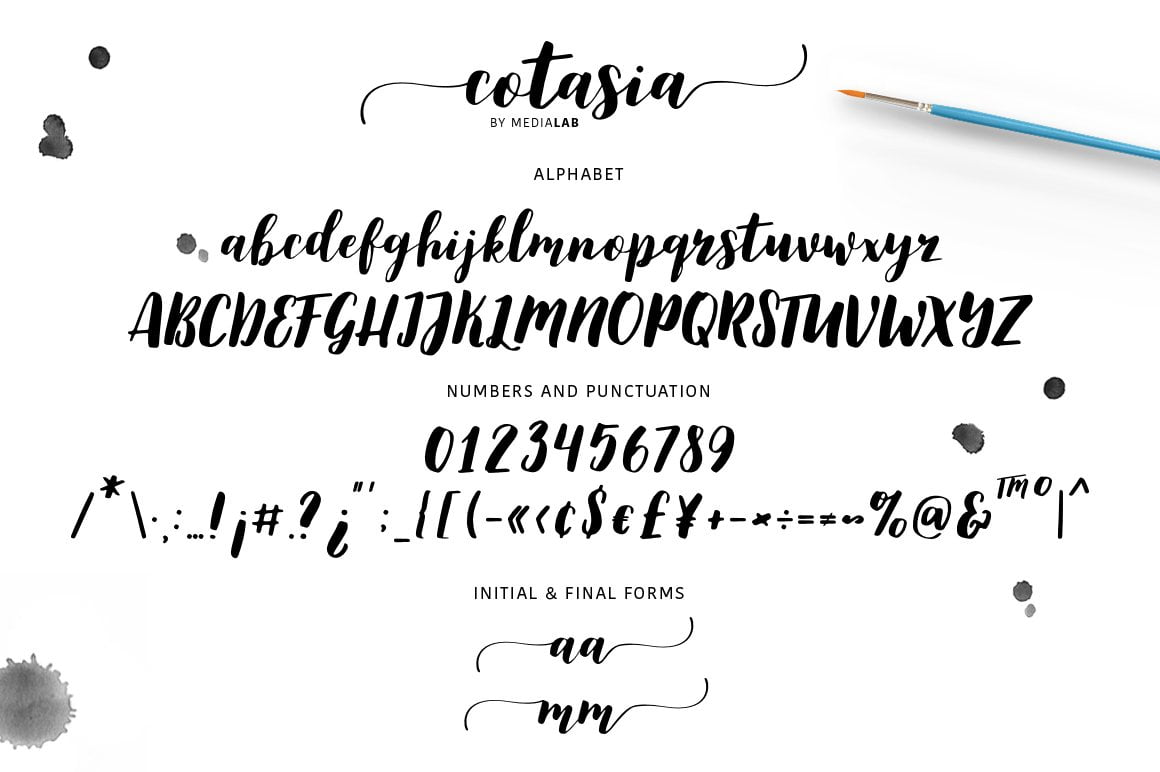 cotasia
BY MEDIALAB
ALPHABET
abcdefghijklmnopqrstuvwxyz
ABCDEFGHIJKLMNOPQRSTUVWXYZ
NUMBERS AND PUNCTUATION
0123456789
/*\·,:…!¡#.?¿"';_{[(-«‹¢$€£¥+−×÷=≠~%@&™º|^
INITIAL & FINAL FORMS
aa
mm